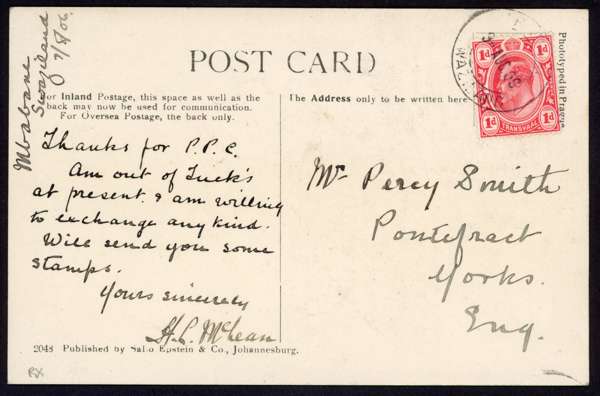 Mbabane
Swaziland
7/8/06.
POST CARD
For Inland Postage, this space as well as the
back may now be used for communication.
For Oversea Postage, the back only.
The Address only to be written here
Phototyped in Prague
1d 1d
1d TRANSVAAL 1d
Thanks for P.P.C.
Am out of Tuck's
at present & am willing
to exchange any kind.
Will send you some
stamps.
Yours sincerely
H.L. McLean
Mr Percy Smith
Pontefract
Yorks.
Eng.
2048 Published by Sallo Epstein & Co., Johannesburg.